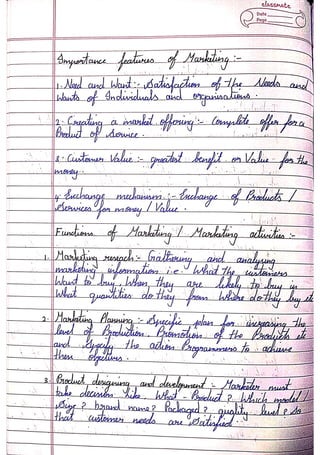 classmate
Date
Page
Importance features of Marketing :-
1. Need and Want :- Satisfaction of the Needs and
Wants of Individuals and organisations.
2. Creating a market offering :- Complete offer for a
Product of Service.
3. Customer Value :- greatest benefit or Value for the
money
4. Exchange mechanism :- Exchange of Products /
Services for money / Value.
Functions of Marketing / Marketing activities :-
1. Marketing reseach :- Gatherying and analysing
marketing information i.e. What the customers
Want to buy, When they are likely to buy in
What quantities do they from Where do they buy etc
2. Marketing Planning :- Specific plan for increasing the
level of Production, Promotion of the Products etc
and Specify the action Programmers to achieve
then objectives.
3. Product designing and development - Marketer must
take decision like, What - Product? Which model /
Size? brand name? Packaged? quality level? So
that customer needs are Satisfied.